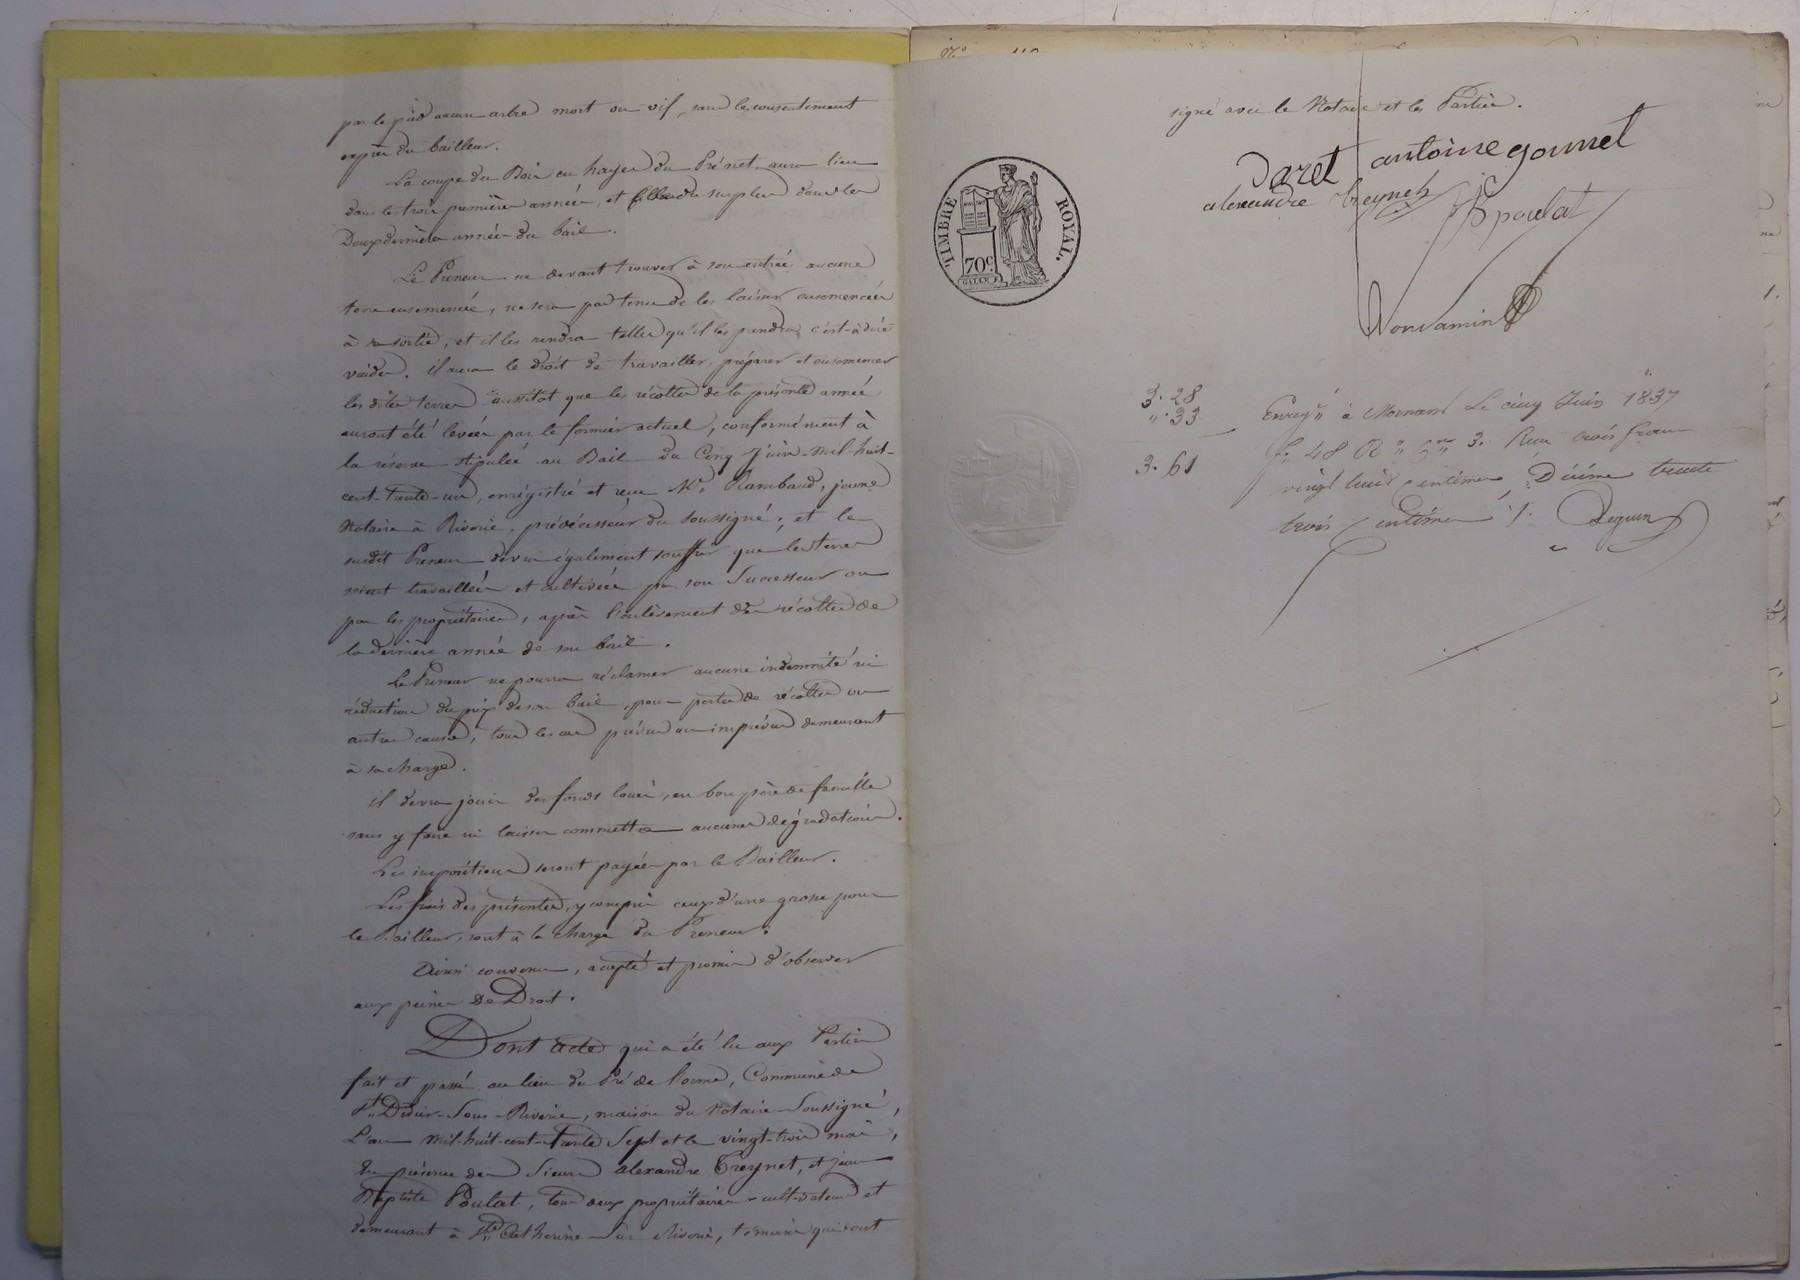 par le pied aucun arbre mort ou vif, sans le consentement
exprès du bailleur.
La coupe du Bois en hayes du Prénet aura lieu
dans les trois premières années, et celle du surplus dans les
Deux dernières années du bail.
Le Preneur ne devant trouver à son entrée aucune
terre ensemencée, ne sera pas tenu de les laisser ensemencées
à sa sortie, et il les rendra telles qu'il les prendra c'est-à-dire
vuides. il aura le droit de travailler, préparer et ensemencer
les dites terres aussitot que les récoltes de la présente année
auront été levées par le fermier actuel, conformément à
la réserve stipulée au Bail du Cinq Juin mil-huit-
cent-trente-un, enrégistré et reçu Me Rambaud, jeune
Notaire à Riverie, prédécesseur du soussigné, et le
susdit Preneur devra également souffrir que les terres
soient travaillées et cultivées par son Successeur ou
par les propriétaires, après l'enlèvement des récoltes de
la dernière année de son bail.
Le Preneur ne pourra réclamer aucune indemnité ni
réduction du prix de son bail, pour pertes de récoltes ou
autres causes, tous les cas prévus ou imprévus demeurant
à sa charge.
il devra jouir des fonds loués, en bon père de famille
sans y faire ni laisser commettre aucunes dégradations.
Les impositions seront payées par le Bailleur.
Les frais des présentes, y compris ceux d'une grosse pour
le Bailleur, sont à la charge du Preneur.
Ainsi convenu, accepté et promis d'observer
aux peines de Droit.
Dont acte qui a été lu aux Parties
fait et passé au lieu du Pré de l'orme, Commune de
St Didier-Sous-Riverie, maison du Notaire Soussigné,
L'an mil-huit-cent-trente Sept et le vingt-trois mai,
En présence des Sieurs alexandre Treynet, et jean
Baptiste Poulat, tous deux propriétaires cultivateurs et
demeurant à Ste Catherine-Sur-Riverie, témoins qui ont
signé avec le Notaire et les Parties.
Daret antoine gonnet
alexandre treynet
JB poulat
TIMBRE ROYAL.
70c.
3. 28
". 33
3. 61
Enregé à Mornant Le cinq Juin 1837
fo 48 Ro Ce 3. Reçu trois francs
vingt huit Centimes Décime trente
trois Centimes